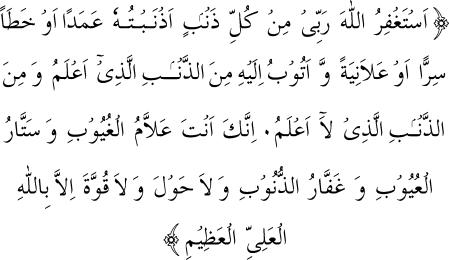 ﴿ اَسْتَغْفِرُ اللهَ رَبِّىْ مِنْ كُلِّ ذَنْۢبٍ اَذْنَبْتُهٗ عَمَدًا اَوْ خَطَأً
سِرًّا اَوْ عَلَانِيَةً وَّ اَتُوْبُ اِلَيْهِ مِنَ الذَّنْۢبِ الَّذِىْٓ اَعْلَمُ وَ مِنَ
الذَّنْۢبِ الَّذِىْ لَآ اَعْلَمُ۰ اِنَّكَ اَنْتَ عَلَّامُ الْغُيُوْبِ وَ سَتَّارُ
الْعُيُوْبِ وَ غَفَّارُ الذُّنُوْبِ وَ لَا حَوْلَ وَ لَا قُوَّةَ اِلَّا بِاللهِ
الْعَلِىِّ الْعَظِيْمِ ﴾